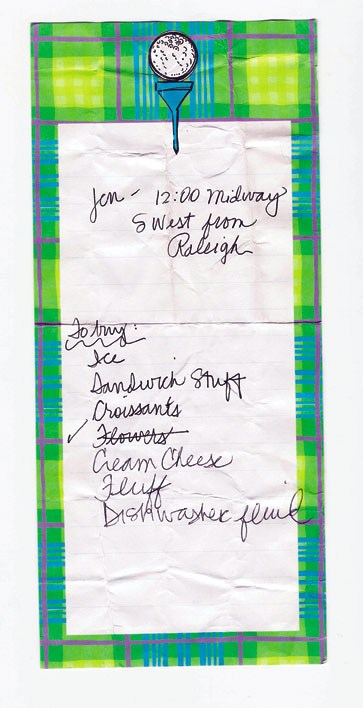 Jen - 12:00 Midway
S West from
Raleigh
To buy:
Ice
Sandwich Stuff
Croissants
Flowers
Cream Cheese
Fluff
Dishwasher fluid